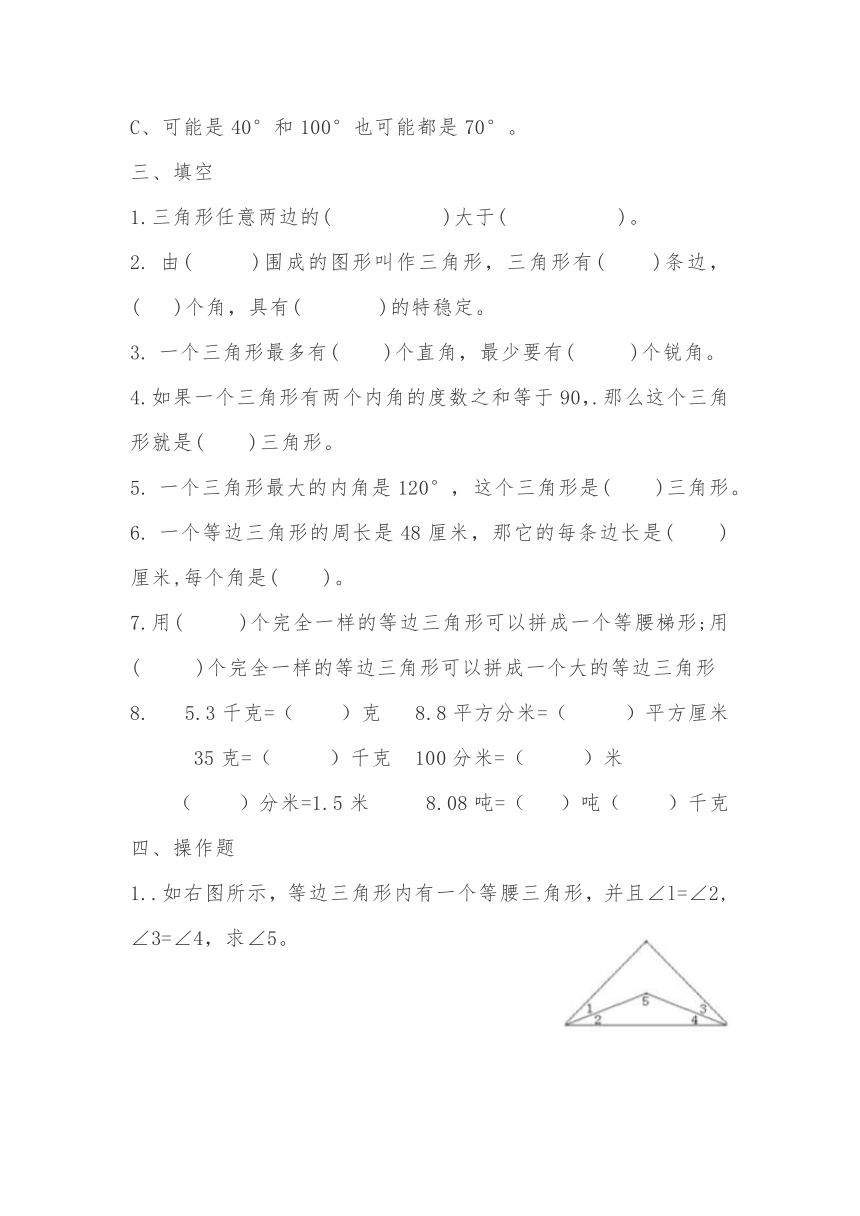 C、可能是 40°和 100°也可能都是 70°。
三、填空
1.三角形任意两边的(          )大于(          )。
2. 由(     )围成的图形叫作三角形，三角形有(    )条边，
(   )个角，具有(       )的特稳定。
3. 一个三角形最多有(    )个直角，最少要有(     )个锐角。
4.如果一个三角形有两个内角的度数之和等于 90,.那么这个三角
形就是(    )三角形。
5. 一个三角形最大的内角是 120°, 这个三角形是(    )三角形。
6. 一个等边三角形的周长是 48 厘米，那它的每条边长是(    )
厘米,每个角是(    )。
7.用(     )个完全一样的等边三角形可以拼成一个等腰梯形;用
(     )个完全一样的等边三角形可以拼成一个大的等边三角形
8.   5.3 千克=（    ）克   8.8 平方分米=（     ）平方厘米
35 克=（     ）千克  100 分米=（     ）米
（    ）分米=1.5 米     8.08 吨=（   ）吨（    ）千克
四、操作题
1..如右图所示，等边三角形内有一个等腰三角形，并且∠1=∠2,
∠3=∠4，求∠5。
1 5 3
2 4